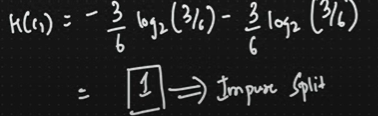 H(c₁) = - 3/6 log₂ (3/6) - 3/6 log₂ (3/6)
= 1 ⇒ Impure Split